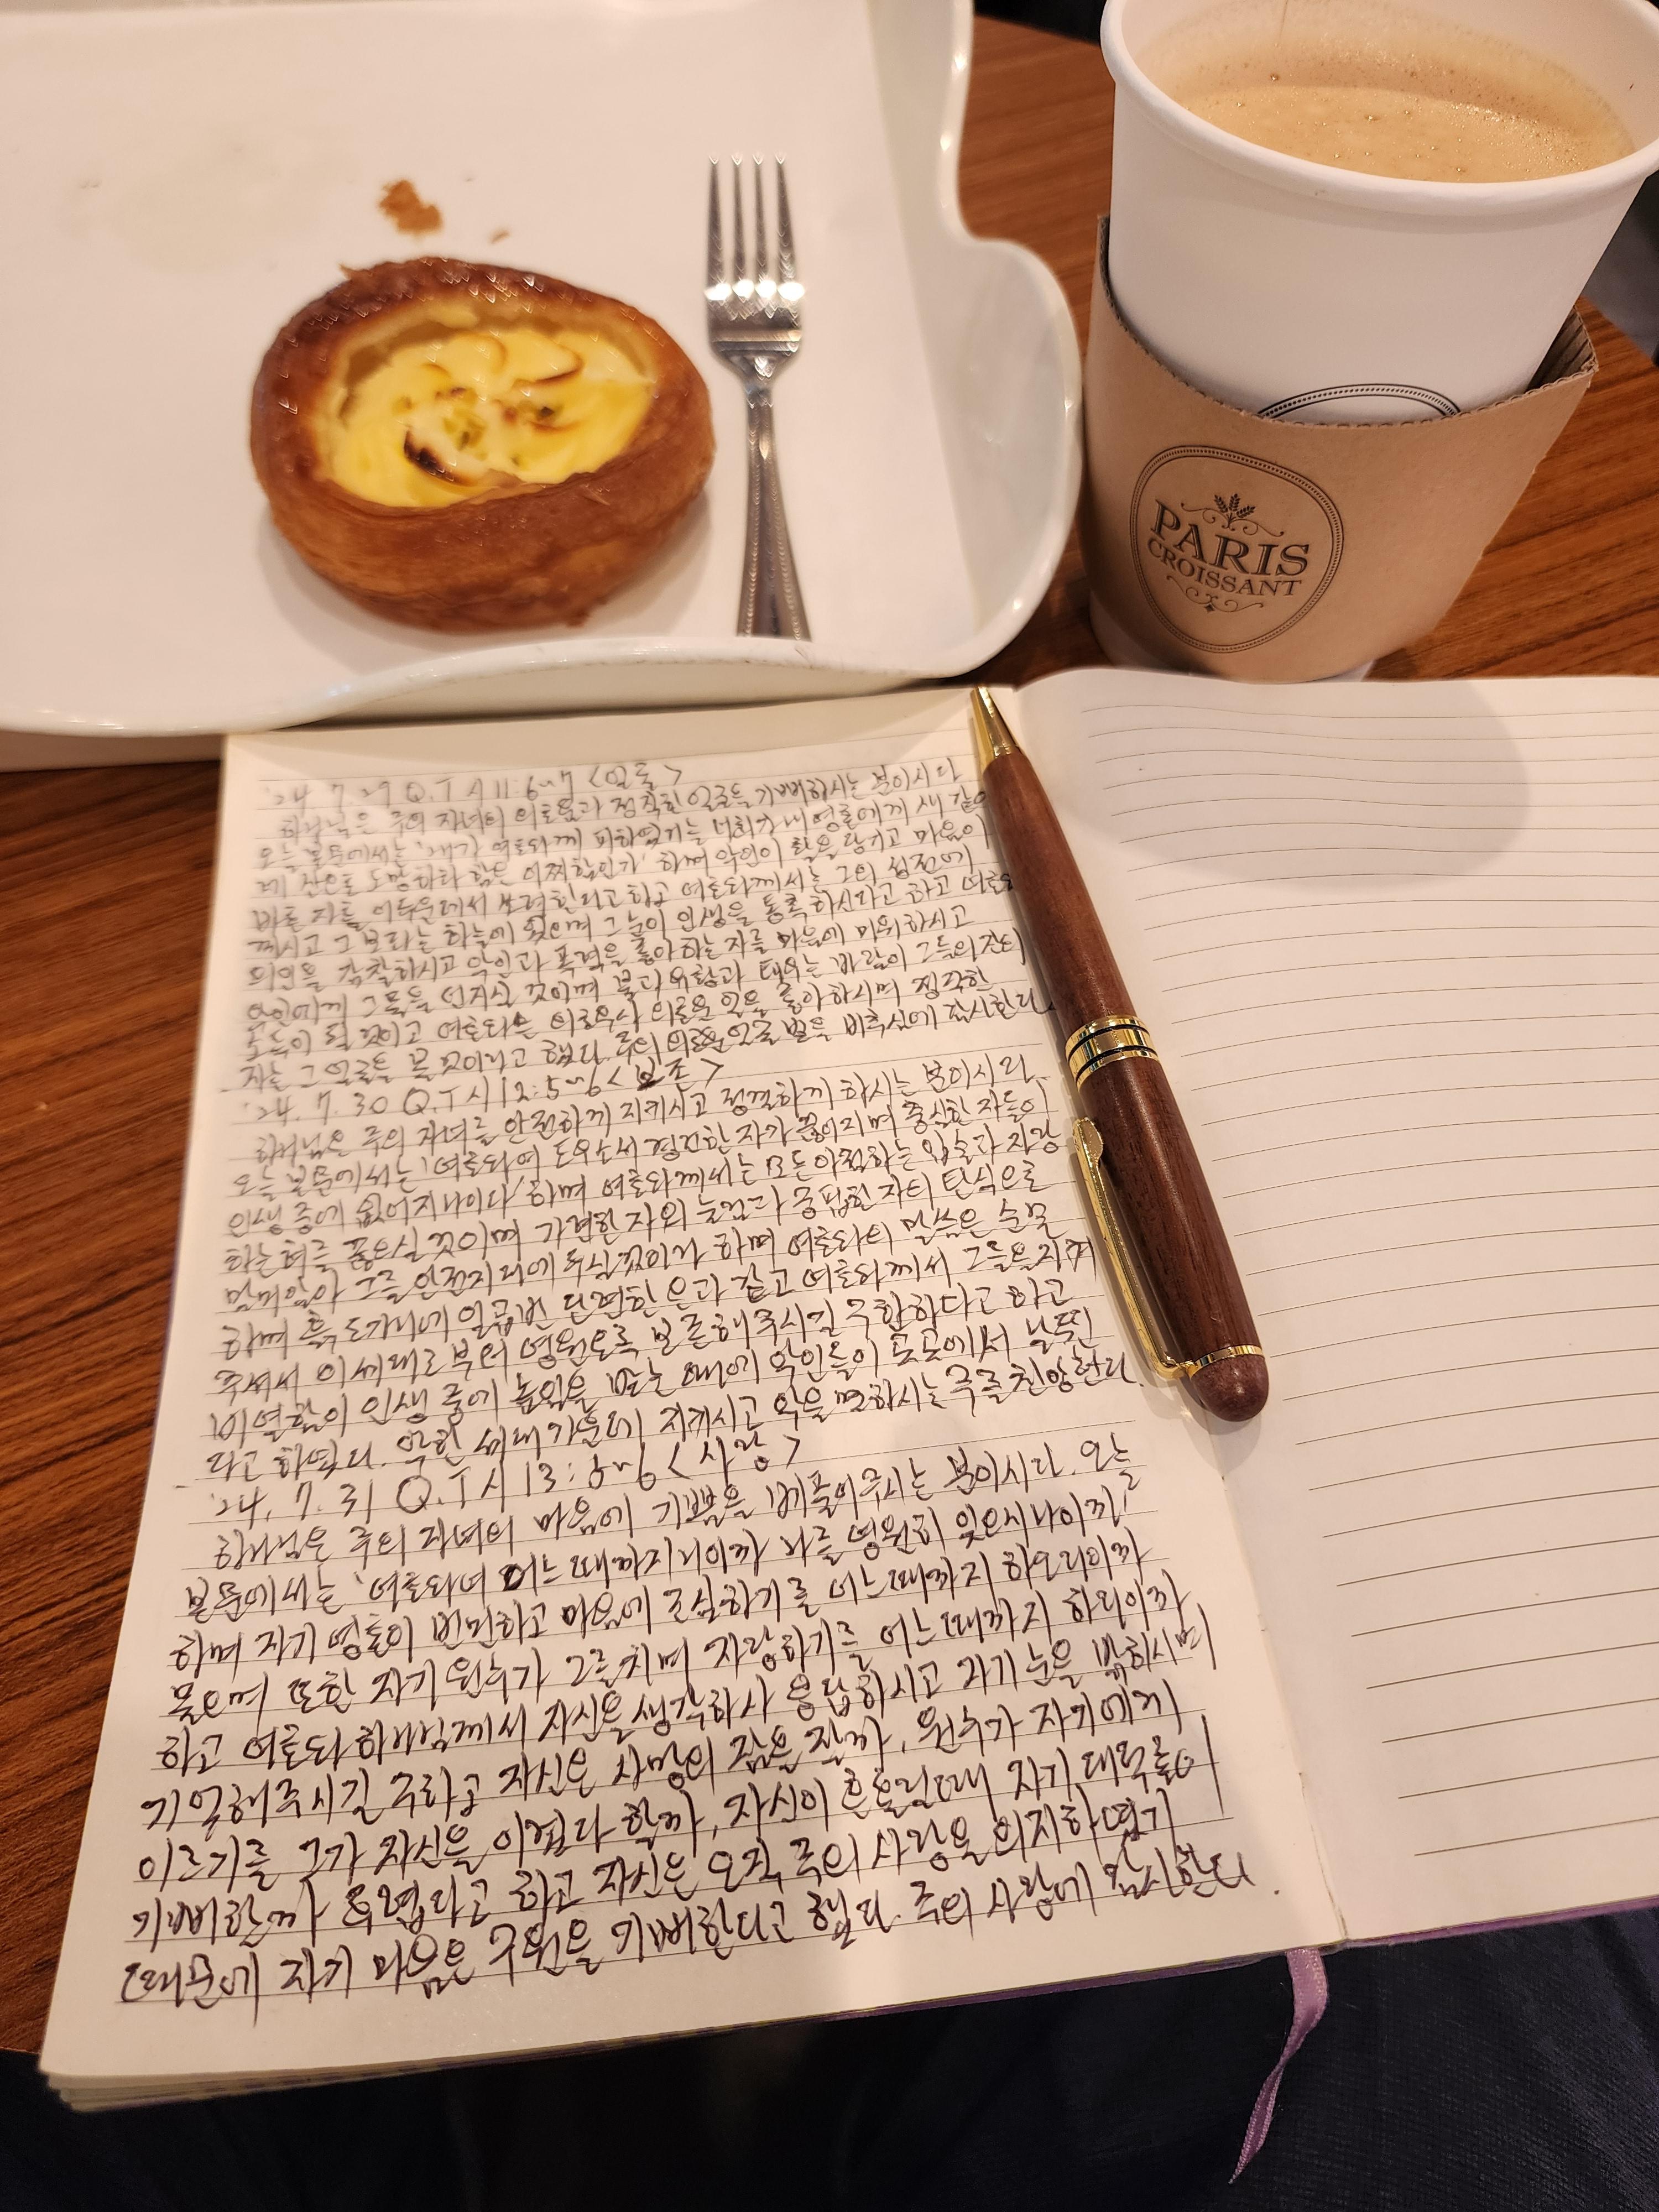 PARIS
CROISSANT
'24. 7. 29 Q.T 시 11:6~7 <얼굴>
하나님은 주의 자녀의 의로움과 정직한 얼굴을 기뻐하시는 분이시다
오늘 본문에서는 '내가 여호와께 피하였거늘 너희가 내 영혼에게 새 같이
네 산으로 도망하라 함은 어찌함인가' 하며 악인이 활을 당기고 마음이
바른 자를 어두운데서 쏘려한다고 하고 여호와께서는 그의 성전에
계시고 그 보좌는 하늘에 있으며 그 눈이 인생을 통촉하신다고 하고 여호와는
의인을 감찰하시고 악인과 폭력을 좋아하는 자를 마음에 미워하시고
악인에게 그물을 던지실 것이며 불과 유황과 태우는 바람이 그들의 잔의
소득이 될 것이고 여호와는 의로우사 의로운 일을 좋아하시며 정직한
자는 그 얼굴을 볼 것이라고 했다. 주의 의로운 얼굴 빛을 비추심에 감사한다.
'24. 7. 30 Q.T 시 12:5~6 <보존>
하나님은 주의 자녀를 안전하게 지키시고 정결하게 하시는 분이시다.
오늘 본문에서는 '여호와여 도우소서 경건한 자가 끊어지며 충실한 자들이
인생 중에 없어지나이다' 하며 여호와께서는 모든 아첨하는 입술과 자랑
하는 혀를 끊으실 것이며 가련한 자의 눌림과 궁핍한 자의 탄식으로
말미암아 그를 안전지대에 두실 것이라 하며 여호와의 말씀은 순결
하며 흙 도가니에 일곱번 단련한 은과 같고 여호와께서 그들을 지켜
주셔서 이 세대로부터 영원토록 보존해주시길 구한하다고 하고
비열함이 인생 중에 높임을 받는 때에 악인들이 곳곳에서 날뛴
다고 하였다. 악한 세대 가운데 지키시고 악을 멸하시는 주를 찬양한다.
'24. 7. 31 Q.T 시 13:5~6 <사랑>
하나님은 주의 자녀의 마음에 기쁨을 베풀어주시는 분이시다. 오늘
본문에서는 '여호와여 어느 때까지니이까 나를 영원히 잊으시나이까'
하며 자기 영혼이 번민하고 마음에 근심하기를 어느 때까지 하오리이까
물으며 또한 자기 원수가 그를 치며 자랑하기를 어느 때까지 하리이까
하고 여호와 하나님께서 자신을 생각하사 응답하시고 자기 눈을 밝히시며
기억해주시길 구하고 자신은 사망의 잠을 잘까, 원수가 자기에게
이르기를 그가 자신을 이겼다 할까, 자신이 흔들릴 때 자기 대적들이
기뻐할까 두렵다고 하고 자신은 오직 주의 사랑을 의지하였기
때문에 자기 마음은 구원을 기뻐한다고 했다. 주의 사랑에 감사한다.